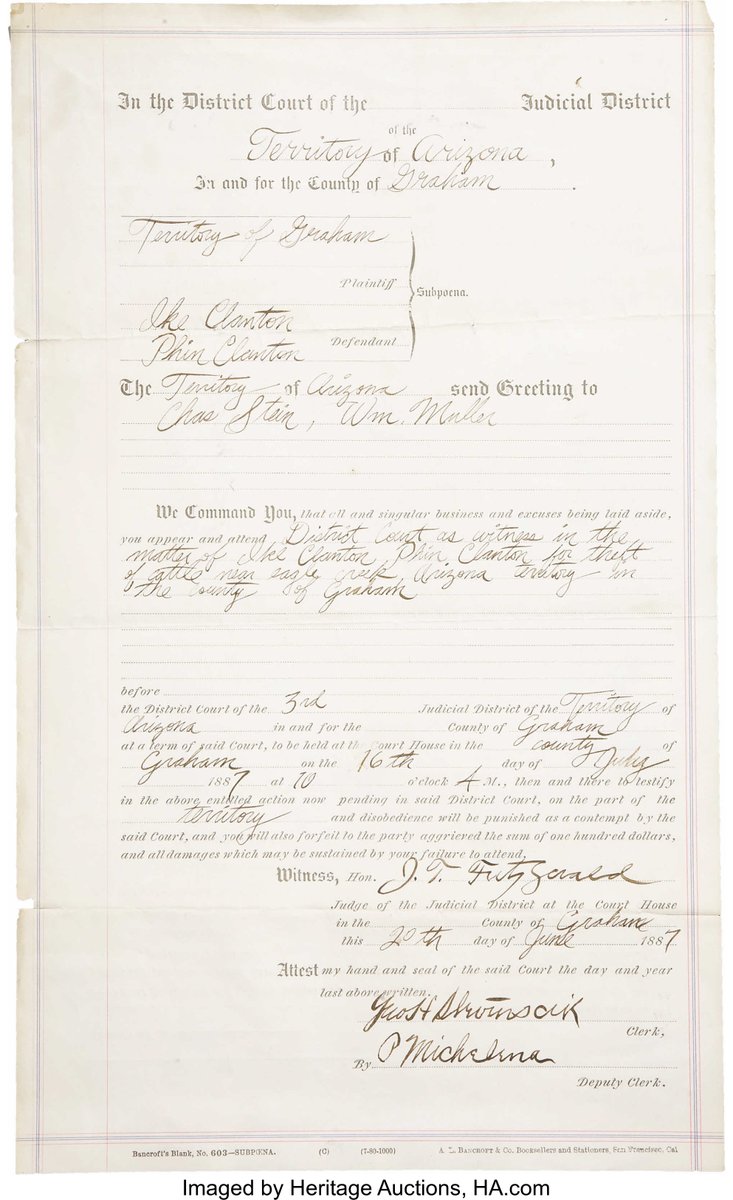 In the District Court of the Judicial District
of the
Territory of Arizona,
In and for the County of Graham.
Territory of Graham
Plaintiff
Subpoena.
Ike Clanton
Phin Clanton Defendant
The Territory of Arizona send Greeting to
Chas Stein, Wm. Muller
We Command You, that all and singular business and excuses being laid aside,
you appear and attend District Court as witness in the
matter of Ike Clanton, Phin Clanton for theft
of cattle near eagle creek, Arizona Territory in
the county of Graham
before
the District Court of the 3rd Judicial District of the Territory of
Arizona in and for the County of Graham
at a term of said Court, to be held at the Court House in the county of
Graham on the 16th day of July
1887 at 10 o'clock A M., then and there to testify
in the above entitled action now pending in said District Court, on the part of the
territory and disobedience will be punished as a contempt by the
said Court, and you will also forfeit to the party aggrieved the sum of one hundred dollars,
and all damages which may be sustained by your failure to attend,
Witness, Hon. J. T. Fitzgerald
Judge of the Judicial District at the Court House
in the County of Graham
this 20th day of June 1887
Attest my hand and seal of the said Court the day and year
last above written.
Geo H
Clerk,
By P Michelena
Deputy Clerk.
Bancroft's Blank, No. 603—SUBPŒNA. (C) (7-80-1000) A. L. BANCROFT & Co. Booksellers and Stationers, San Francisco, Cal
Imaged by Heritage Auctions, HA.com